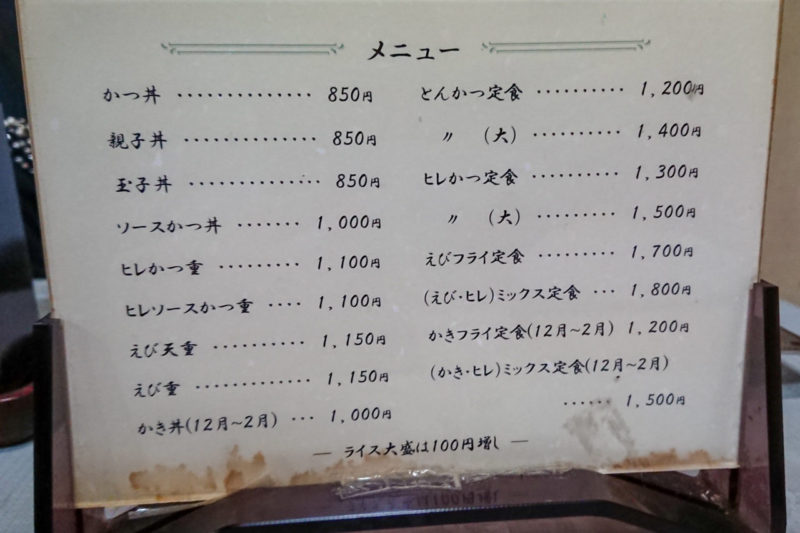 メニュー
かつ丼 ‥‥‥‥‥‥‥ 850円
親子丼 ‥‥‥‥‥‥‥ 850円
玉子丼 ‥‥‥‥‥‥‥ 850円
ソースかつ丼 ‥‥‥‥ 1,000円
ヒレかつ重 ‥‥‥‥‥ 1,100円
ヒレソースかつ重 ‥‥ 1,100円
えび天重 ‥‥‥‥‥‥ 1,150円
えび重 ‥‥‥‥‥‥‥ 1,150円
かき丼(12月~2月) ‥‥ 1,000円
とんかつ定食 ‥‥‥‥‥ 1,200円
〃 (大) ‥‥‥‥‥ 1,400円
ヒレかつ定食 ‥‥‥‥‥ 1,300円
〃 (大) ‥‥‥‥‥ 1,500円
えびフライ定食 ‥‥‥‥ 1,700円
(えび・ヒレ)ミックス定食 ‥‥ 1,800円
かきフライ定食(12月~2月) 1,200円
(かき・ヒレ)ミックス定食(12月~2月)
‥‥‥ 1,500円
― ライス大盛は100円増し ―